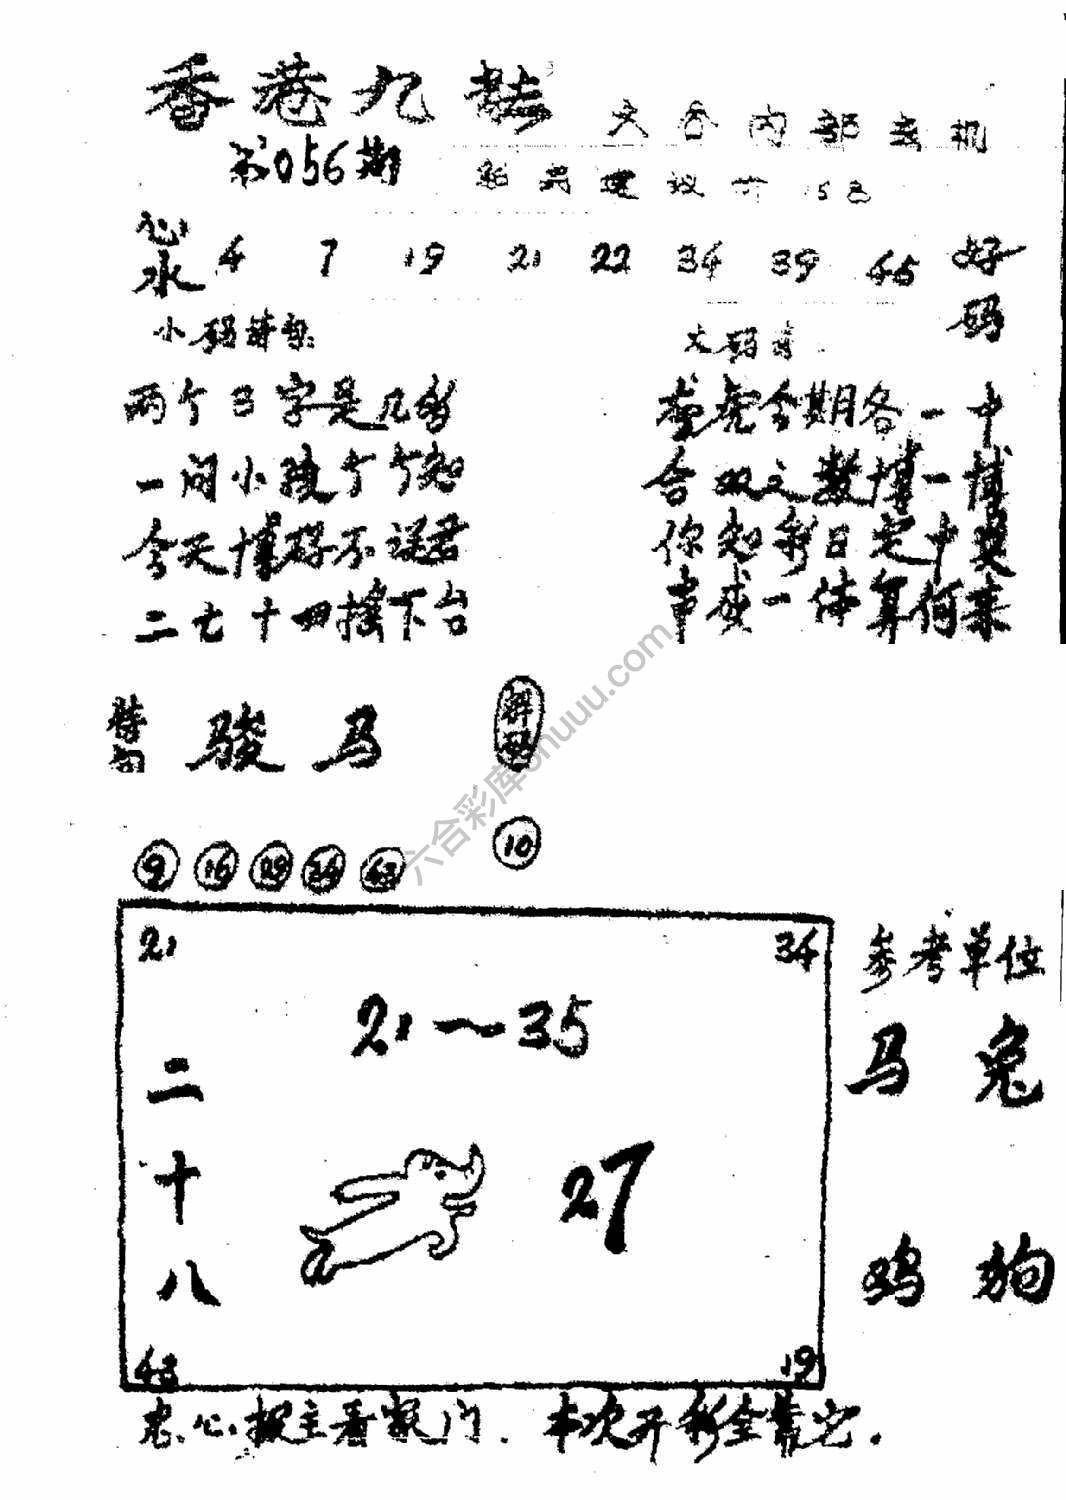 香港九龙
第056期
六合内部玄机
心水 4 7 19 21 22 34 39 45 好码
小码诗
大码诗
两个日字是几多
一问小孩个个知
今天博好不误君
二七十四接下台
龙虎今期各一中
合双之数博一博
你知彩日定中奖
声威一体算何来
特句
骏马
9 16 29 34 43
10
21
34
21~35
二十八
27
43
19
参考单位
马 兔
鸡 狗
忠心报主看家门．本次开彩全靠它．
六合彩库6huuu.com